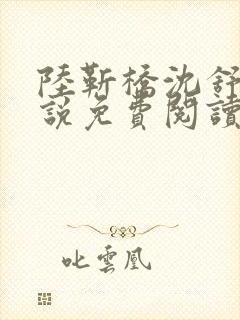 陸靳橋沈舒
說免費閱讀
叱雲凰